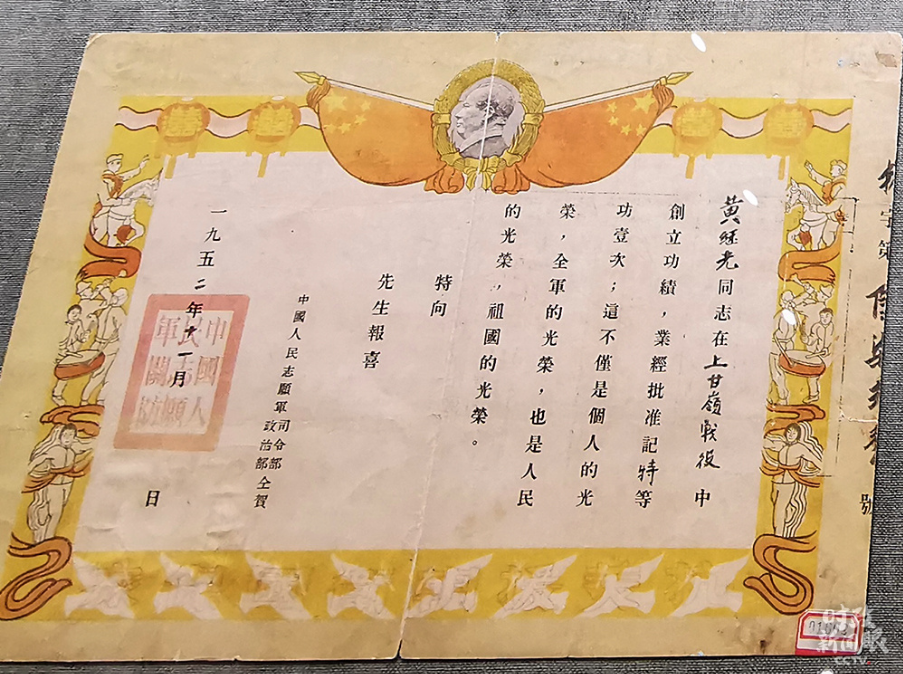 黃繼光同志在上甘嶺戰役中
創立功績，業經批准記特等
功壹次；這不僅是個人的光
榮，全軍的光榮，也是人民
的光榮，祖國的光榮。
特向
先生報喜
中國人民志願軍司令部
政治部仝賀
一九五二年十一月 日
中國人
民志願
軍關防
字第
號
CCTV